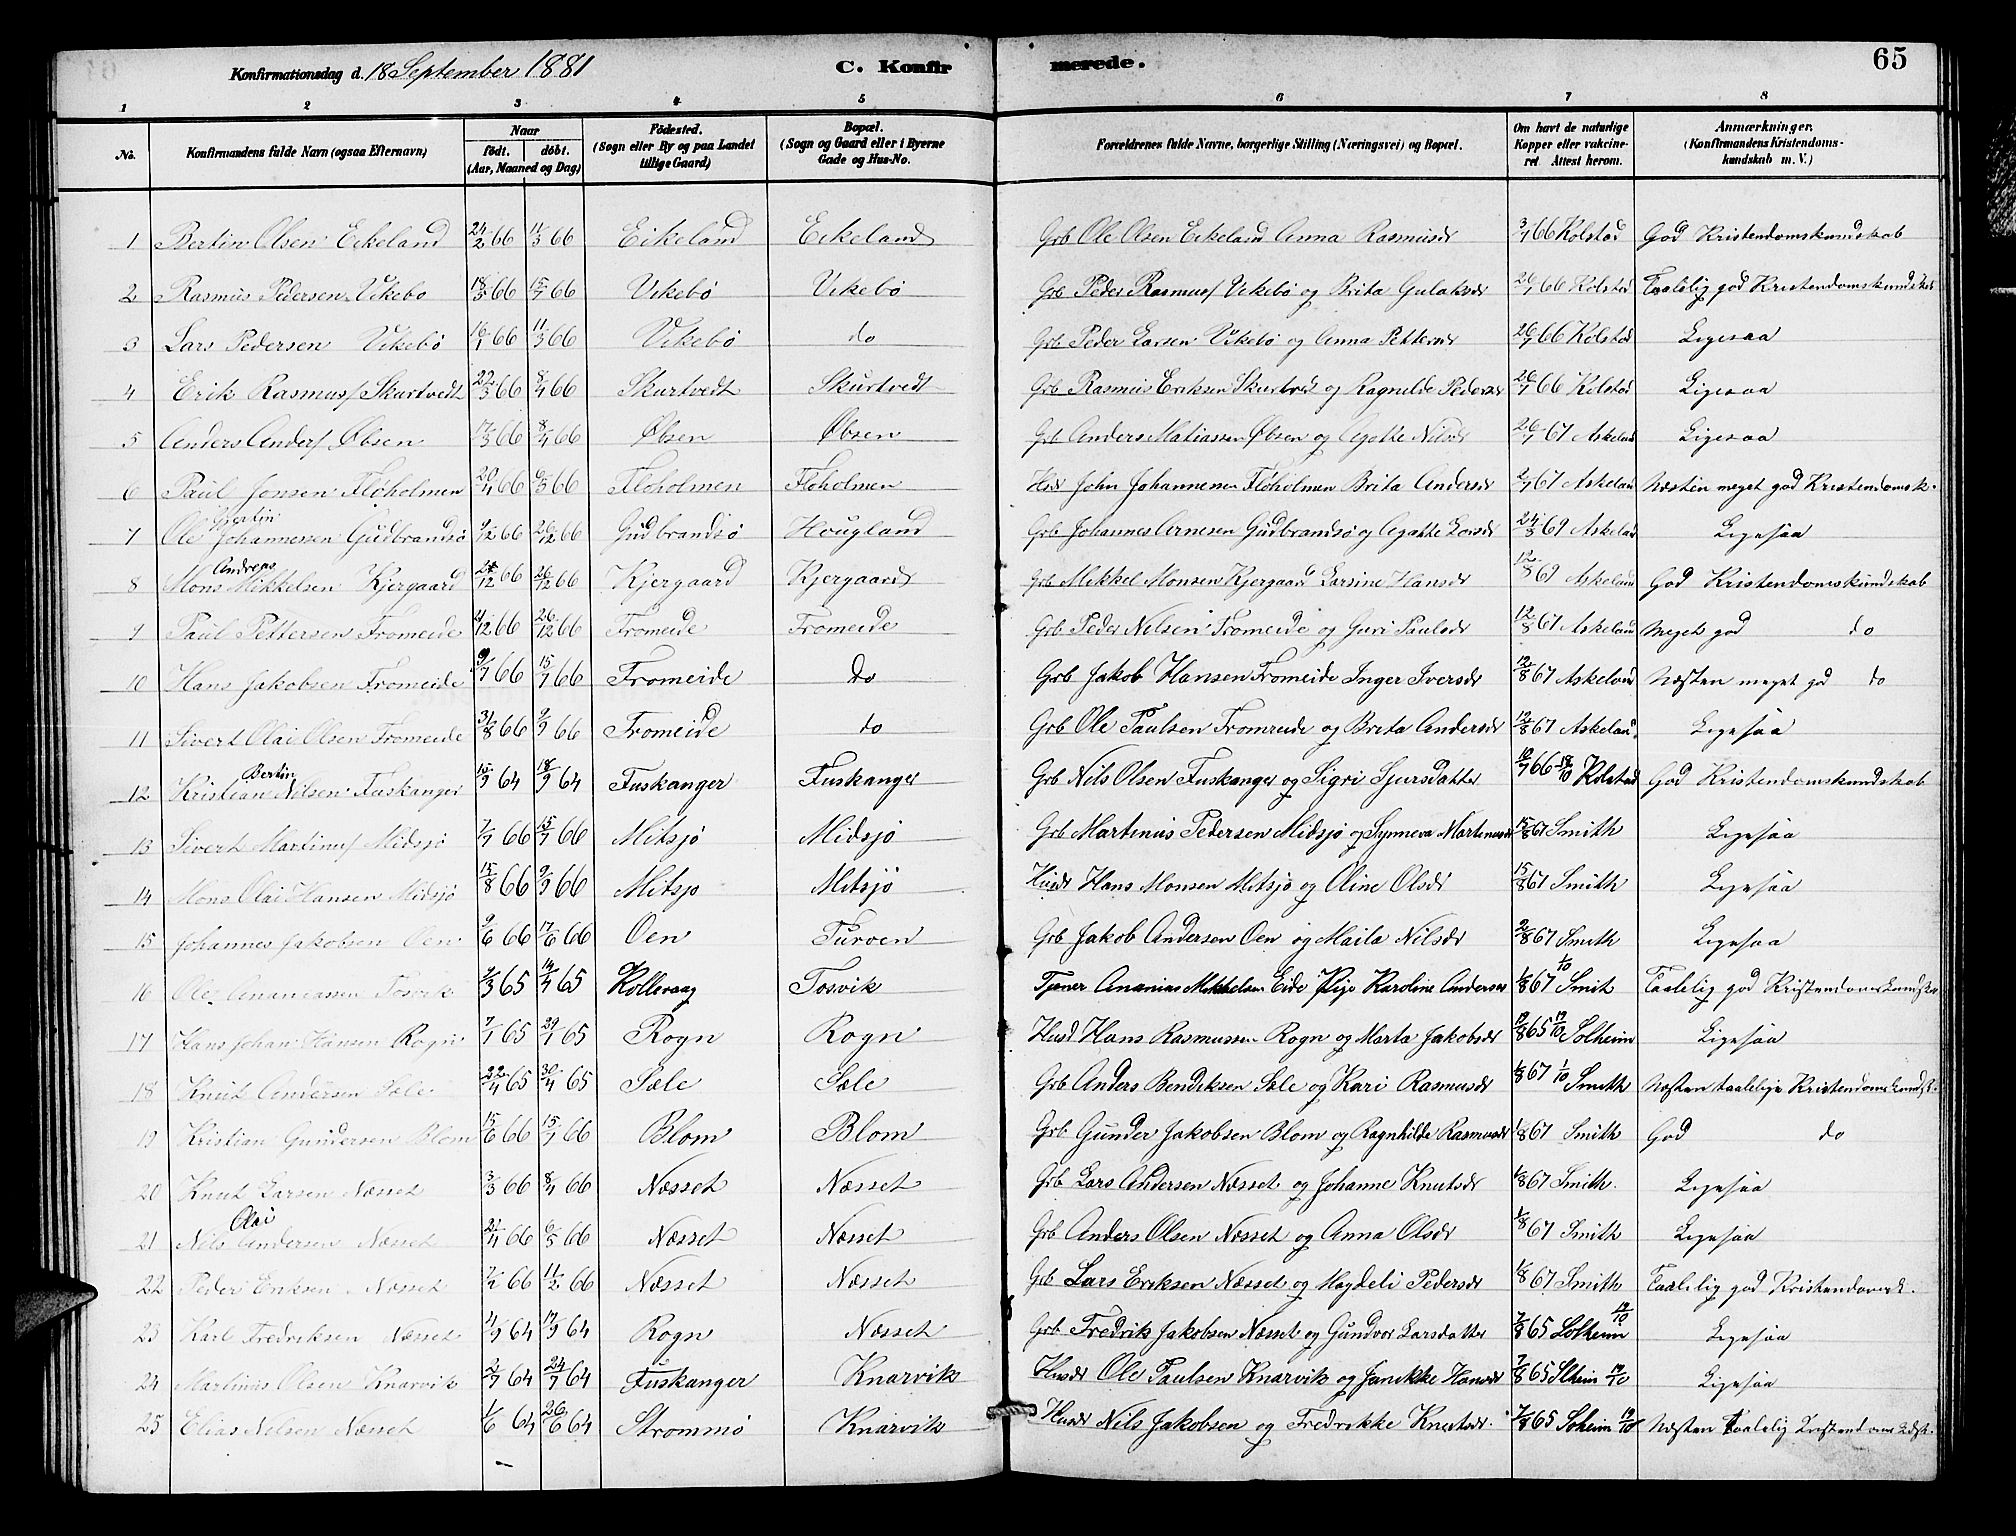 Konfirmationsdag d. 18 September 1881 C. Konfirmerede. 65
1 2 3 4 5 6 7 8
No. Konfirmandens fulde Navn (ogsaa Efternavn) Naar födt. döbt. (Aar, Maaned og Dag) Födested. (Sogn eller By og paa Landet tillige Gaard) Bopæl. (Sogn og Gaard eller i Byerne Gade og Hus-No. Forældrenes fulde Navne, borgerlige Stilling (Næringsvei) og Bopæl. Om havt de naturlige Kopper eller vakcineret Attest herom. Anmærkninger. (Konfirmandens Kristendomskundskab m. V.)
1 Bertin Olsen Eikeland 24/2 66 11/3 66 Eikeland Eikeland Grb Ole Olsen Eikeland Anna Rasmusdr 3/7 66 Kolstad God Kristendomskundskab
2 Rasmus Pedersen Vikebø 18/5 66 15/7 66 Vikebø Vikebø Grb Peder Rasmus/ Vikebø og Brita Gulaksdr 26/7 66 Kolstad Taalelig god Kristendomskundskab
3 Lars Pedersen Vikebø 16/1 66 11/3 66 Vikebø do Grb Peder Larsen Vikebø og Anna Pettersdr 26/7 66 Kolstad Ligesaa
4 Erik Rasmus/ Skurtvedt 22/3 66 8/4 66 Skurtvedt Skurtvedt Grb Rasmus Eriksen Skurtved og Ragnilde Pedersdr 26/7 66 Kolstad Ligesaa
5 Anders Anders/ Øbsen 17/3 66 8/4 66 Øbsen Øbsen Grb Anders Matiassen Øbsen og Agatte Nilsdr 26/7 67 Askeland Ligesaa
6 Paul Jonsen Fløholmen 20/4 66 6/5 66 Fløholmen Fløholmen Husdr John Johannesen Fløholmen Brita Andersdr 2/7 67 Askeland Næsten meget god Kristendomsk.
7 Ole Bertin Johannessen Gudbrandsø 9/12 66 26/12 66 Gudbrandsø Hougland Grb Johannes Arnesen Gudbrandsø og Agatte Larsdr 24/3 69 Askeland Ligesaa
8 Mons Andreas Mikkelsen Kjergaard 24/12 66 26/12 66 Kjergaard Kjergaard Grb Mikkel Monsen Kjergaard Larsine Hansdr 12/8 69 Askeland God Kristendomskundskab
9 Paul Pettersen Fromeide 2/12 66 26/12 66 Fromeide Fromeide Grb Peder Nelsen Fromeide og Guri Paulsdr 12/8 67 Askeland Meget god do
10 Hans Jakobsen Fromeide 9/7 66 15/7 66 Fromeide do Grb Jakob Hansen Fromeide Inger Iversdr 12/8 67 Askeland Næsten meget god do
11 Sivert Olai Olsen Fromeide 31/8 66 9/9 66 Fromeide do Grb Ole Paulsen Fromreide og Brita Andersdr 12/8 67 Askeland Ligesaa
12 Kristian Bertin Nilsen Fuskanger 15/9 64 18/9 64 Fuskanger Fuskanger Grb Nils Olsen Fuskanger og Sigri Sjursdatter 12/7 66 12/10 Kolstad God Kristendomskundskab
13 Sivert Martinus/ Midsjø 7/7 66 15/7 66 Mitsjø Midsjø Grb Martinus Pedersen Midsjø og Synneva Martinusdr 15/8 67 Smith Ligesaa
14 Mons Olai Hansen Midsjø 15/8 66 9/9 66 Mitsjø Mitsjø Husdr Hans Monsen Mitsjø og Oline Olsdr 15/8 67 Smith Ligesaa
15 Johannes Jakobsen Oen 9/6 66 17/6 66 Oen Turøen Grb Jakob Andersen Oen og Maila Nilsdr 2/8 67 Smith Ligesaa
16 Ole Ananiassen Tosvik 3/3 65 14/4 65 Rollevaag Tosvik Tjener Ananias Mikkelsen Eide Pige Karoline Andersdr 1/8 67 1/10 Smit Taalelig god Kristendomskundskab
17 Hans Johan Hansen Rogn 7/1 65 29/1 65 Rogn Rogn Husd Hans Rasmussen Rogn og Marta Jakobsdr 12/8 65 12/10 Solheim Ligesaa
18 Knut Andersen Sæle 22/4 65 30/4 65 Sæle Sæle Grb Anders Bendiksen Sæle og Kari Rasmusdr 1/8 67 1/10 Smith Næsten taalelige Kristendomskundsk.
19 Kristian Gundersen Blom 15/6 66 15/7 66 Blom Blom Grb Gunder Jakobsen Blom og Ragnhilde Rasmusdr 1/8 67 Smith God do
20 Knut Larsen Næsset 3/3 66 8/4 66 Næsset Næsset Grb Lars Andersen Næsset og Johanne Knutsdr 1/8 67 Smith Ligesaa
21 Nils Olai Andersen Næsset 21/4 66 6/5 66 Næsset Næsset Grb Anders Olsen Næsset og Anna Olsdr 1/8 67 Smith Ligesaa
22 Peder Eriksen Næsset 7/1 66 11/2 66 Næsset Næsset Grb Lars Eriksen Næsset og Magdeli Pedersdr 1/8 67 Smith Taalelig god Kristendomsk.
23 Karl Fredriksen Næsset 4/9 64 17/9 64 Rogn Næsset Grb Fredrik Jakobsen Næsset og Gundvor Larsdatter 7/8 65 Solheim 12/10 Ligesaa
24 Martinus Olsen Knarvik 2/7 64 24/7 64 Fuskanger Knarvik Husdr Ole Paulsen Knarvik og Janikke Hansdr 7/8 65 Slheim 12/10 Ligesaa
25 Elias Nelsen Næsset 1/6 64 26/6 64 Strømmø Knarvik Husdr Nils Jakobsen og Fredrikke Knutsdr 7/8 65 Solheim 12/10 Næsten taalelig